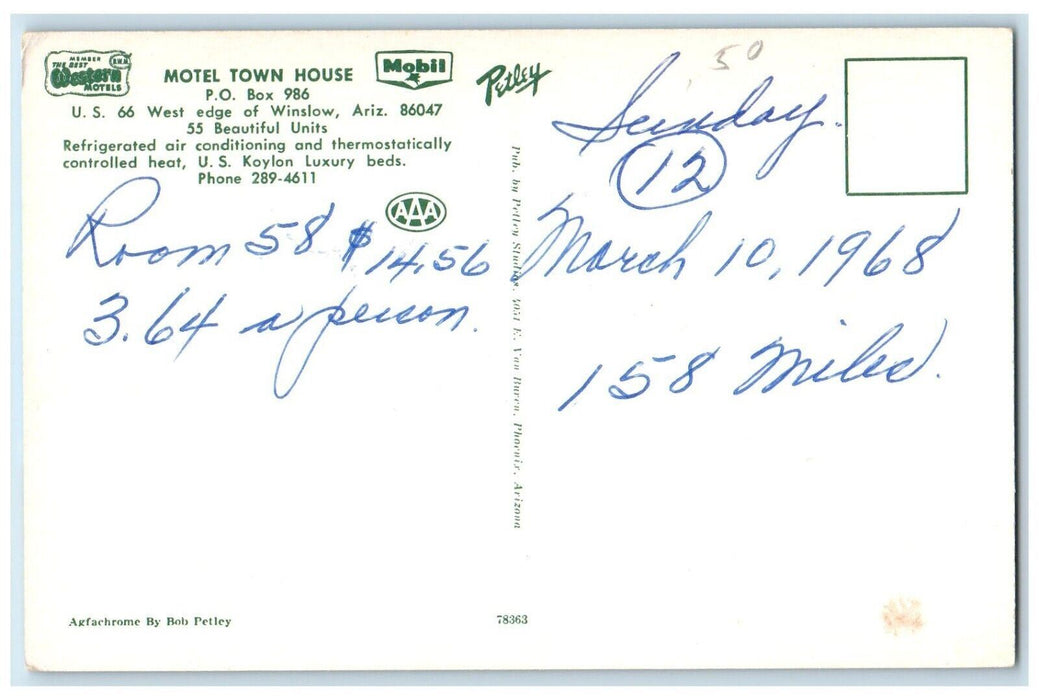 MEMBER
THE BEST
Western
MOTELS
B.W.M.
Mobil
Petley
MOTEL TOWN HOUSE
P.O. Box 986
U.S. 66 West edge of Winslow, Ariz. 86047
55 Beautiful Units
Refrigerated air conditioning and thermostatically
controlled heat, U.S. Koylon Luxury beds.
Phone 289-4611
AAA
Room 58 $14.56
3.64 a person.
Pub. by Petley Studios, 4051 E. Van Buren, Phoenix, Arizona
50
Sunday.
12
March 10, 1968
158 Miles.
Agfachrome By Bob Petley
78363